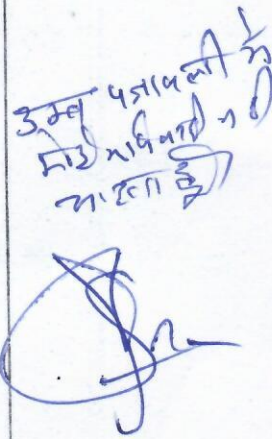 उक्त पत्रावली में
कोई कार्यवाही नहीं
चाहता हूँ